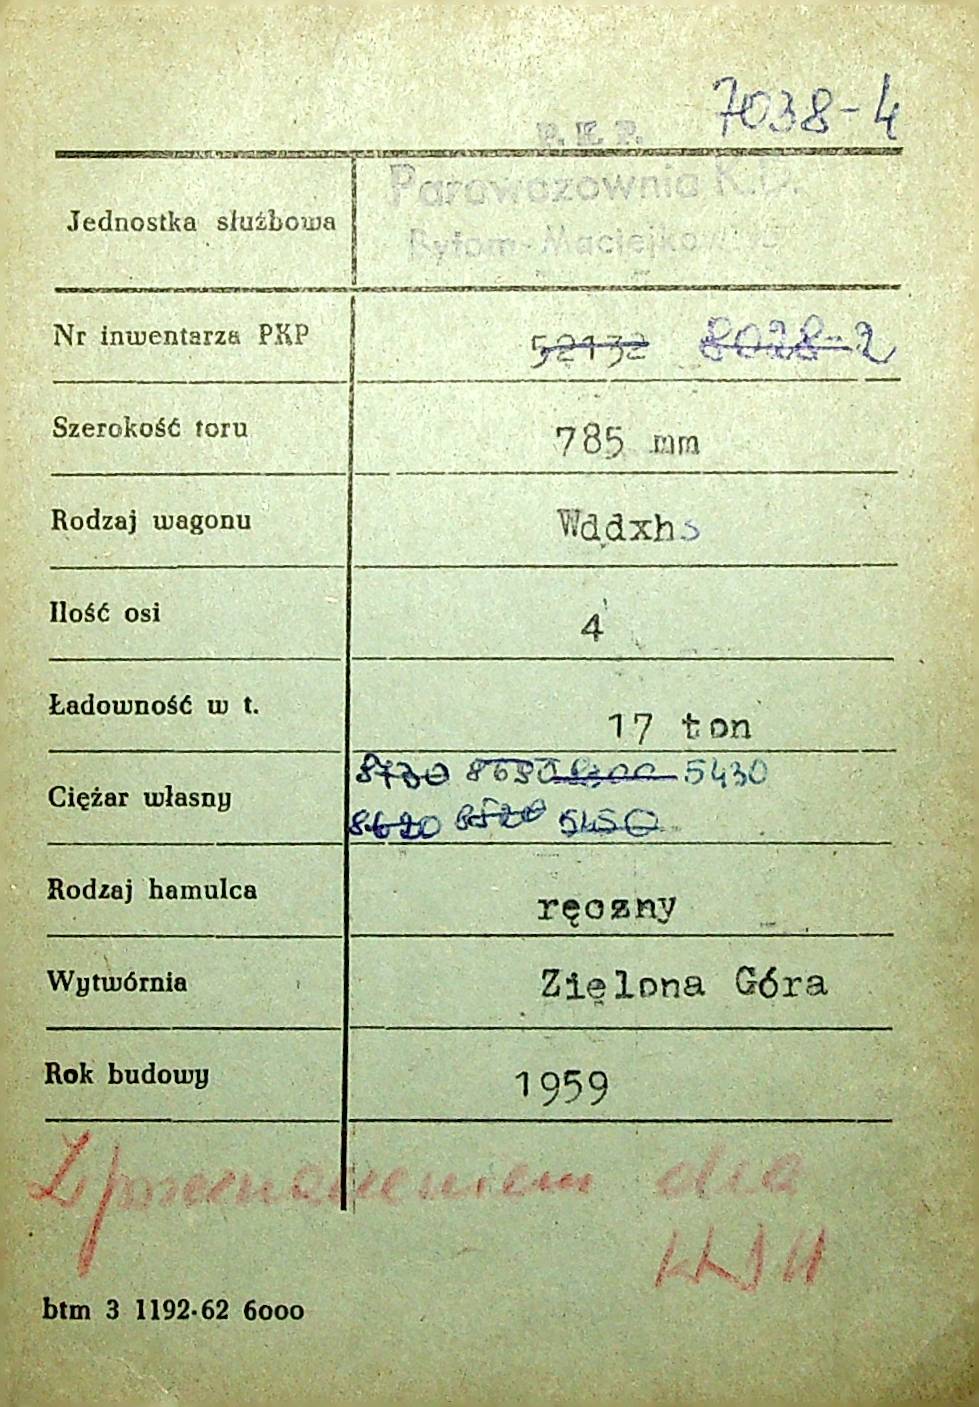 7038-4
P. K. P.
Parowozownia K.D.
Jednostka służbowa
Bytom-Maciejkowice
Nr inwentarza PKP 52132 8028-2
Szerokość toru 785 mm
Rodzaj wagonu Wddxhs
Ilość osi 4
Ładowność w t. 17 ton
8730 8650 5430
Ciężar własny
8620 8520 5450
Rodzaj hamulca ręczny
Wytwórnia Zielona Góra
Rok budowy 1959
Z przeznaczeniem dla
btm 3 1192-62 6000